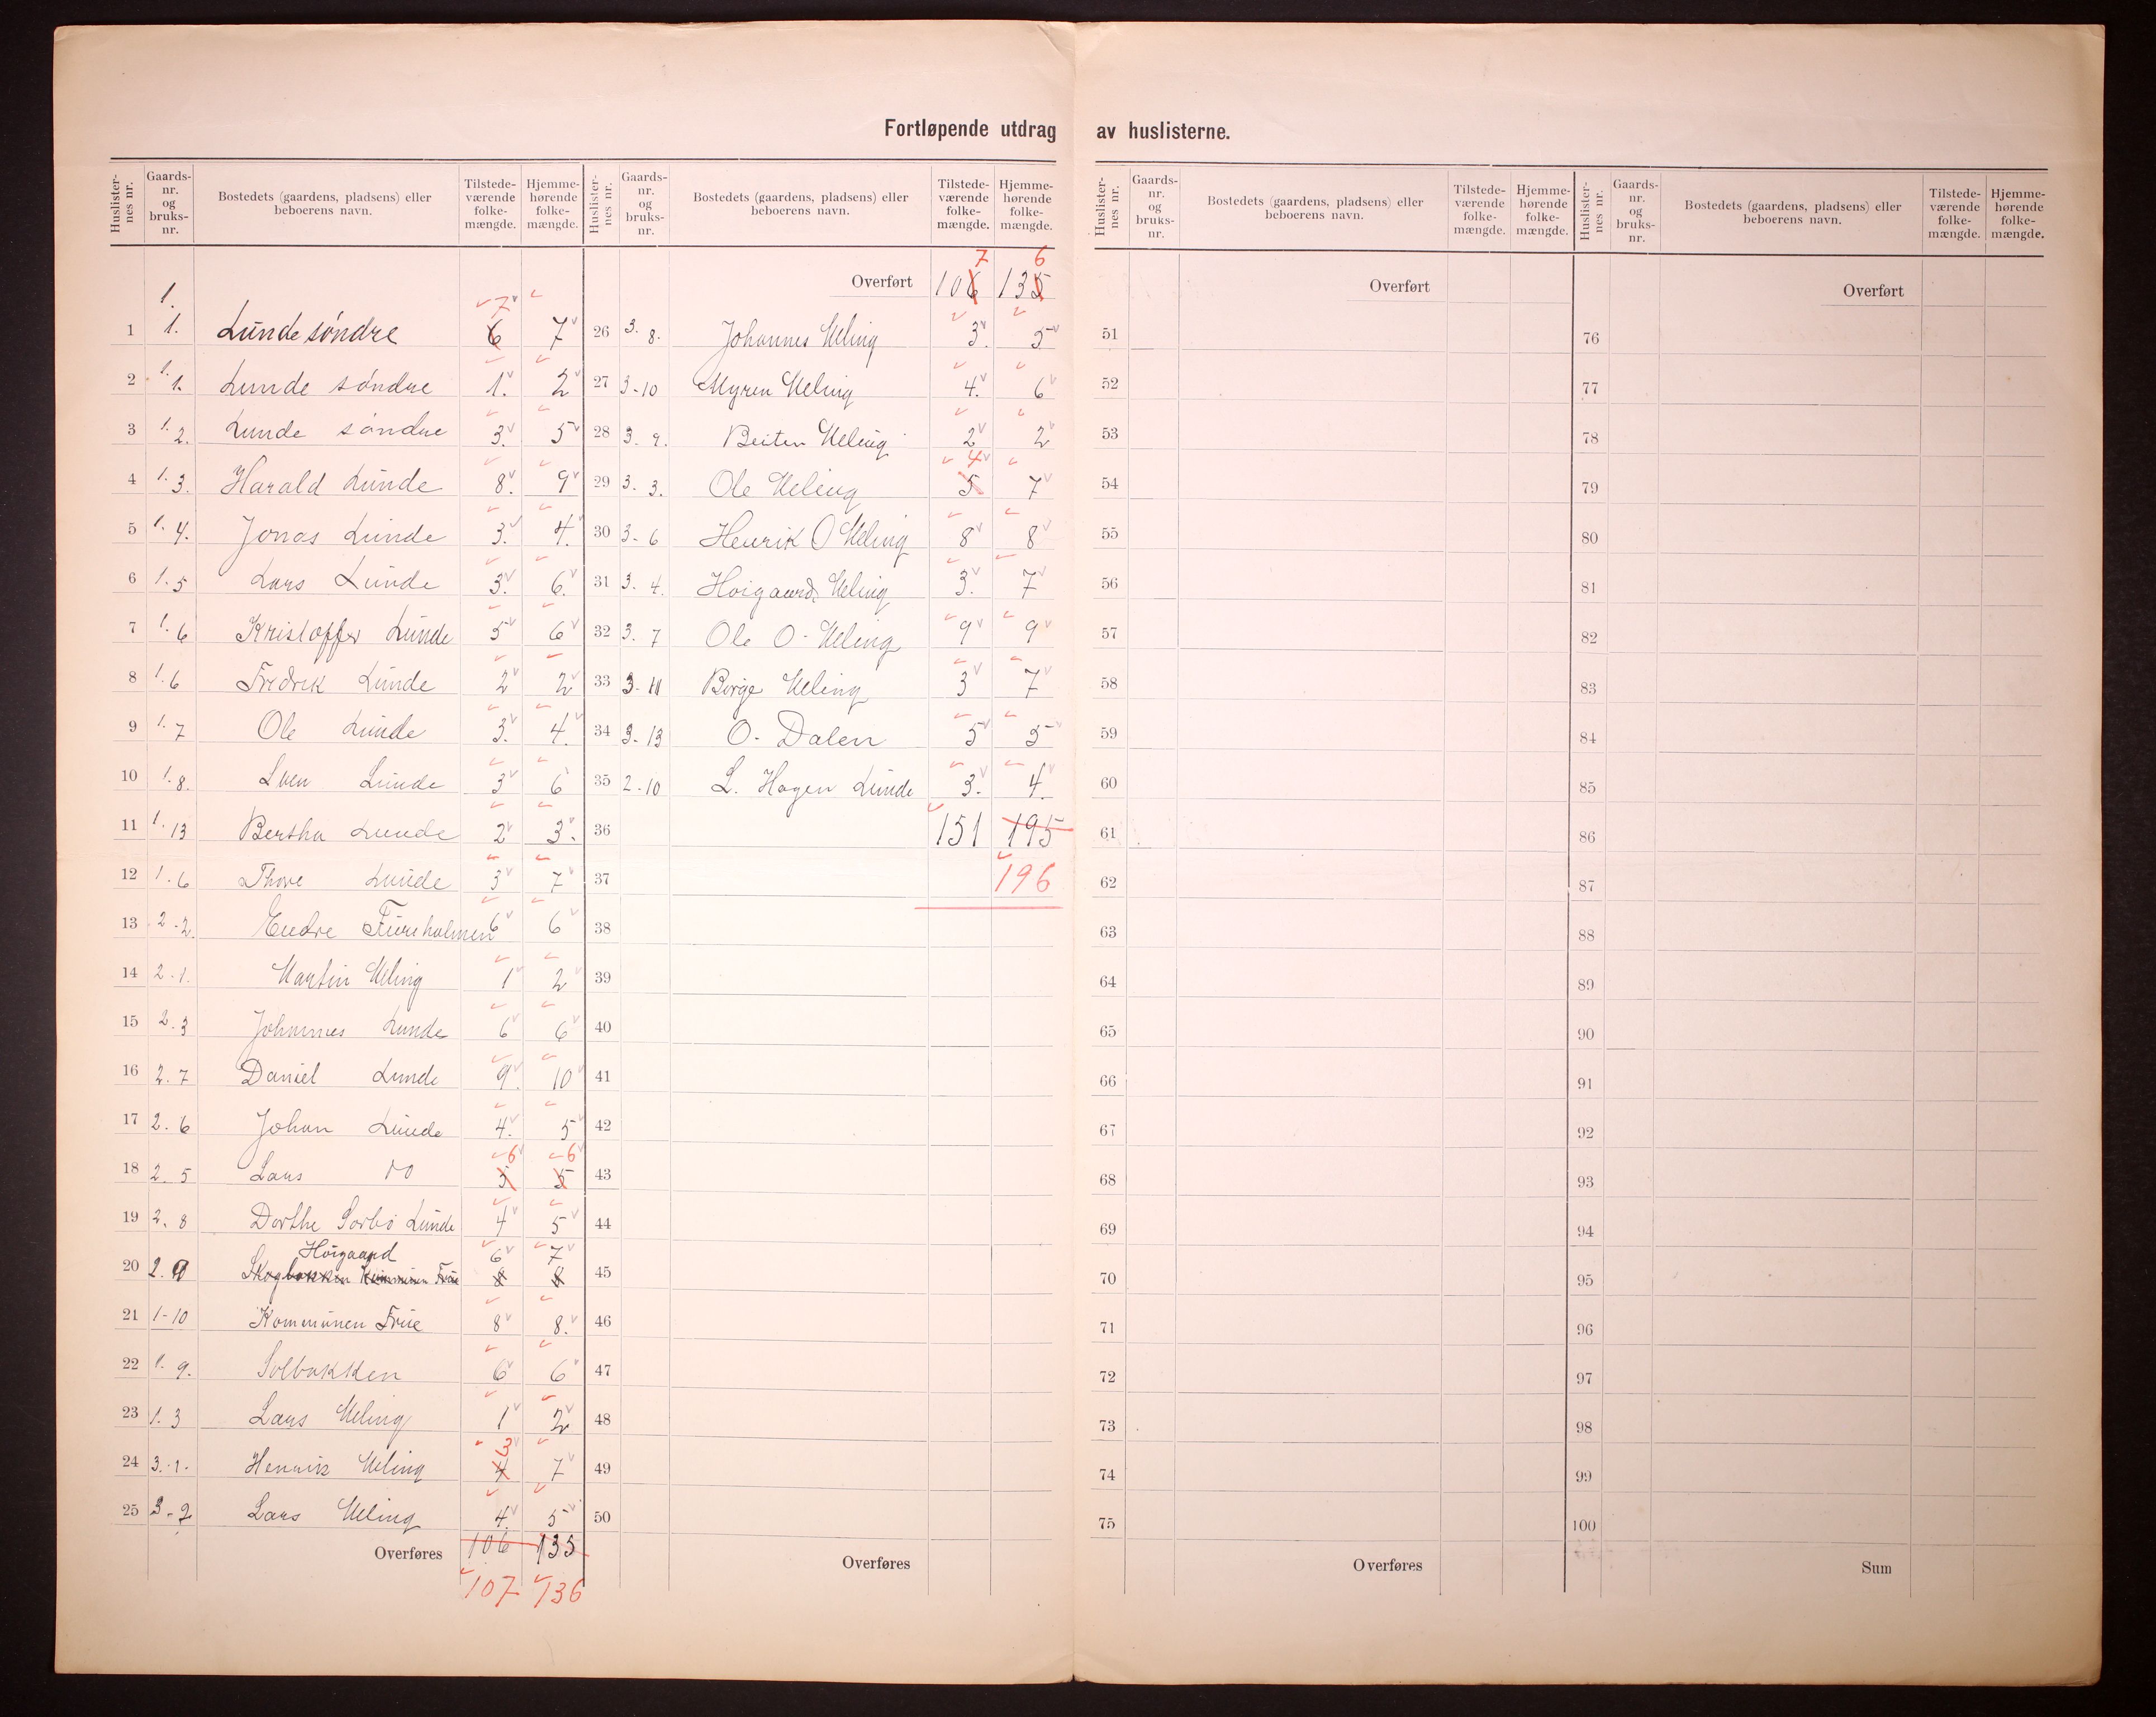 Fortløpende utdrag av huslisterne.
Huslister-nes nr. Gaards-nr. og bruks-nr. Bostedets (gaardens, pladsens) eller beboerens navn. Tilstede-værende folke-mængde. Hjemme-hørende folke-mængde.
1 1. 1. Lunde søndre 6 7 7
2 1. 1. Lunde søndre 1. 2
3 1. 2. Lunde søndre 3. 5
4 1. 3. Harald Lunde 8. 9
5 1. 4. Jonas Lunde 3. 4.
6 1. 5 Lars Lunde 3. 6.
7 1. 6 Kristoffer Lunde 5 6
8 1. 6 Fredrik Lunde 2 2
9 1. 7 Ole Lunde 3. 4.
10 1. 8. Sven Lunde 3 6
11 1. 13 Bertha Lunde 2 3.
12 1. 6 Thore Lunde 3 7
13 2. 2. Endre Fureholmen 6 6
14 2. 1. Martin Ueling 1 2
15 2. 3 Johannes Lunde 6 6
16 2. 7 Daniel Lunde 9. 10
17 2. 6 Johan Lunde 4. 5
18 2. 5 Lars do 5 6 5 6
19 2. 8 Dorthe Sørbø Lunde 4 5
Høigaard 6 7
20 2. 9 Skogbakken Kommunen Frue 8 8
21 1-10 Kommunen Frue 8 8.
22 1. 9. Solbakken 6 6
23 1. 3 Lars Ueling 1 2
24 3. 1. Henrik Ueling 4 3 7
25 3. 2 Lars Ueling 4. 5
Overføres 106 135
107 136
Huslister-nes nr. Gaards-nr. og bruks-nr. Bostedets (gaardens, pladsens) eller beboerens navn. Tilstede-værende folke-mængde. Hjemme-hørende folke-mængde.
7 6
Overført 106 135
26 3. 8. Johannes Ueling 3. 5
27 3-10 Myren Ueling 4. 6
28 3. 9. Beiten Ueling 2 2
29 3. 3. Ole Ueling 5 4 7
30 3-6 Henrik O Ueling 8 8
31 3. 4. Høigaard Ueling 3. 7
32 3. 7 Ole O. Ueling 9 9
33 3-11 Børge Ueling 3 7
34 3-13 O. Dalen 5 5
35 2-10 L. Hagen Lunde 3. 4.
36 151 195
37 196
38
39
40
41
42
43
44
45
46
47
48
49
50
Overføres
Huslister-nes nr. Gaards-nr. og bruks-nr. Bostedets (gaardens, pladsens) eller beboerens navn. Tilstede-værende folke-mængde. Hjemme-hørende folke-mængde.
Overført
51
52
53
54
55
56
57
58
59
60
61
62
63
64
65
66
67
68
69
70
71
72
73
74
75
Overføres
Huslister-nes nr. Gaards-nr. og bruks-nr. Bostedets (gaardens, pladsens) eller beboerens navn. Tilstede-værende folke-mængde. Hjemme-hørende folke-mængde.
Overført
76
77
78
79
80
81
82
83
84
85
86
87
88
89
90
91
92
93
94
95
96
97
98
99
100
Sum